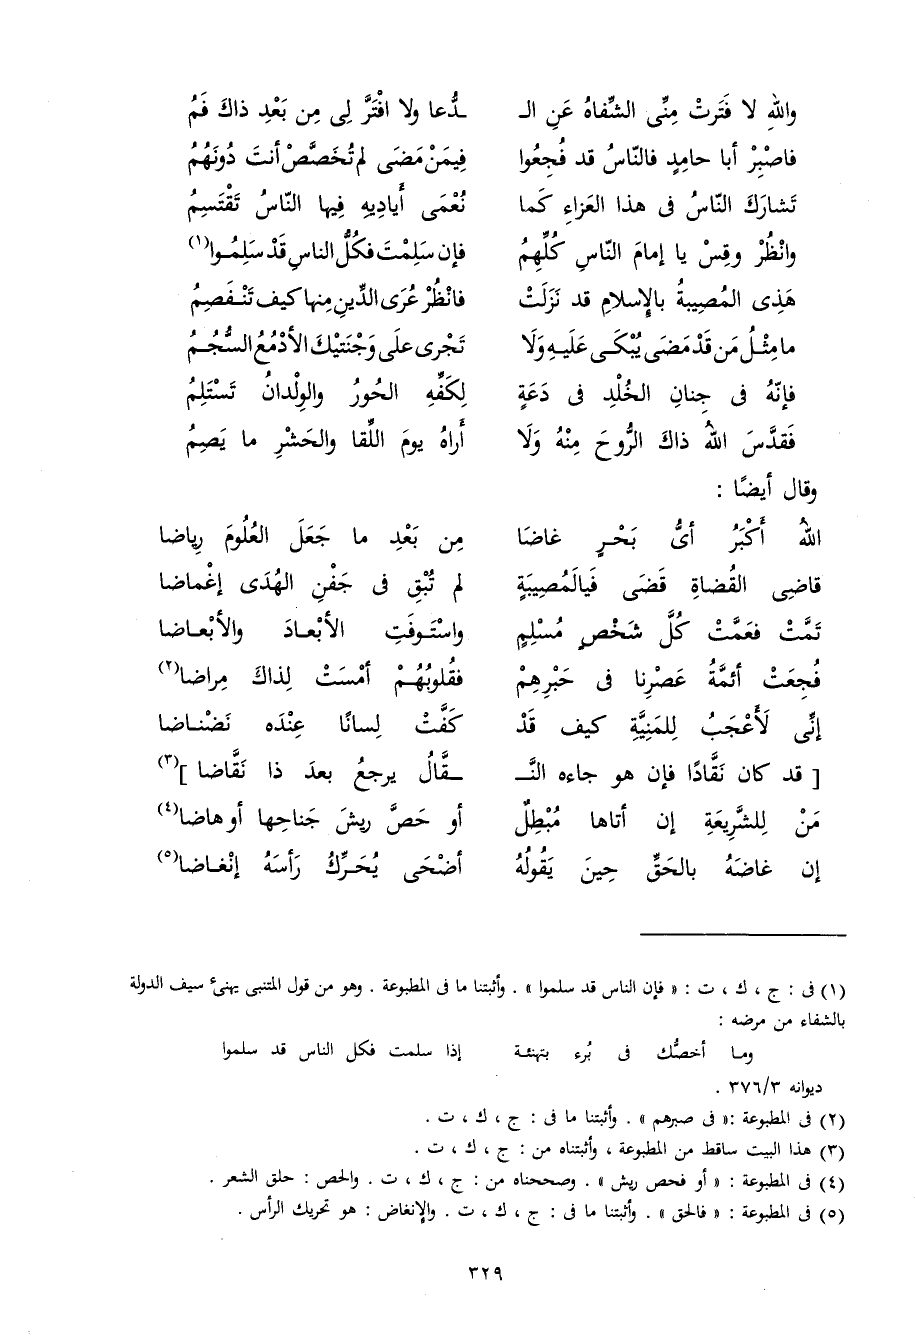 واللهِ لا فَتَرتْ مِنِّى الشِّفاهُ عَنِ الـ ـدُّعا ولا افْتَرَّ لِى مِن بَعْدِ ذاكَ فَمُ
فاصْبِرْ أبا حامِدٍ فالنّاسُ قد فُجِعُوا فِيمَنْ مَضَى لم تُخَصَّصْ أنتَ دُونَهُمُ
تَشارَكَ النّاسُ فى هذا العَزاءِ كَما نُعْمَى أَيادِيهِ فِيها النّاسُ تَقْتَسِمُ
وانْظُرْ وقِسْ يا إمامَ النّاسِ كُلِّهِمُ فإن سَلِمْتَ فكُلُّ الناسِ قَدْ سَلِمُوا(١)
هَذِى المُصِيبةُ بالإِسلامِ قد نَزَلَتْ فانْظُرْ عُرَى الدِّينِ مِنها كيف تَنْفَصِمُ
ما مِثْلُ مَن قَدْ مَضَى يُبْكَى عَلَيهِ وَلَا تَجْرِى علَى وَجْنَتيْكَ الأدْمُعُ السُّجُمُ
فإنّهُ فى جِنانِ الخُلْدِ فى دَعَةٍ لِكَفِّهِ الحُورُ والوِلْدانُ تَسْتَلِمُ
فَقدَّسَ اللهُ ذاكَ الرُّوحَ مِنْهُ وَلَا أَراهُ يومَ اللِّقا والحَشْرِ ما يَصِمُ
وقال أيضًا :
اللهُ أَكْبَرُ أىُّ بَحْرٍ غاضَا مِن بَعْدِ ما جَعَلَ العُلُومَ رِياضا
قاضِى القُضاةِ قَضَى فَيالَمُصِيبَةٍ لم تُبْقِ فى جَفْنِ الهُدَى إغْماضا
تَمَّتْ فعَمَّتْ كُلَّ شَخْصٍ مُسْلِمٍ واسْتَوفَتِ الأبْعادَ والأبْعاضا
فُجِعَتْ أئمَّةُ عَصْرِنا فى حَبْرِهِمْ فقُلوبُهُمْ أمْسَتْ لِذاكَ مِراضا(٢)
إنِّى لَأَعْجَبُ لِلمَنِيَّةِ كيف قَدْ كَفَّتْ لِسانًا عِنْدَه نَضْناضا
[ قد كان نَقَّادًا فإن هو جاءه النَّـ ـقَّالُ يرجعُ بعدَ ذا نَقَّاضا ](٣)
مَنْ لِلشَّرِيعَةِ إن أتاها مُبْطِلٌ أو حَصَّ ريشَ جَناحِها أو هاضا(٤)
إن غاضَهُ بالحَقِّ حِينَ يَقُولُهُ أضْحَى يُحَرِّكُ رَأسَهُ إنْغاضا(٥)
(١) فى : ج ، ك ، ت : « فإن الناس قد سلموا » . وأثبتنا ما فى المطبوعة . وهو من قول المتنبى يهنئ سيف الدولة
بالشفاء من مرضه :
وما أخصُّك فى بُرء بتهنئة إذا سلمت فكل الناس قد سلموا
ديوانه ٣٧٦/٣ .
(٢) فى المطبوعة :« فى صبرهم » . وأثبتنا ما فى : ج ، ك ، ت .
(٣) هذا البيت ساقط من المطبوعة ، وأثبتناه من : ج ، ك ، ت .
(٤) فى المطبوعة : « أو فحص ريش » . وصححناه من : ج ، ك ، ت . والحص : حلق الشعر .
(٥) فى المطبوعة : « فالحق » . وأثبتنا ما فى : ج ، ك ، ت . والإنغاض : هو تحريك الرأس .
٣٢٩